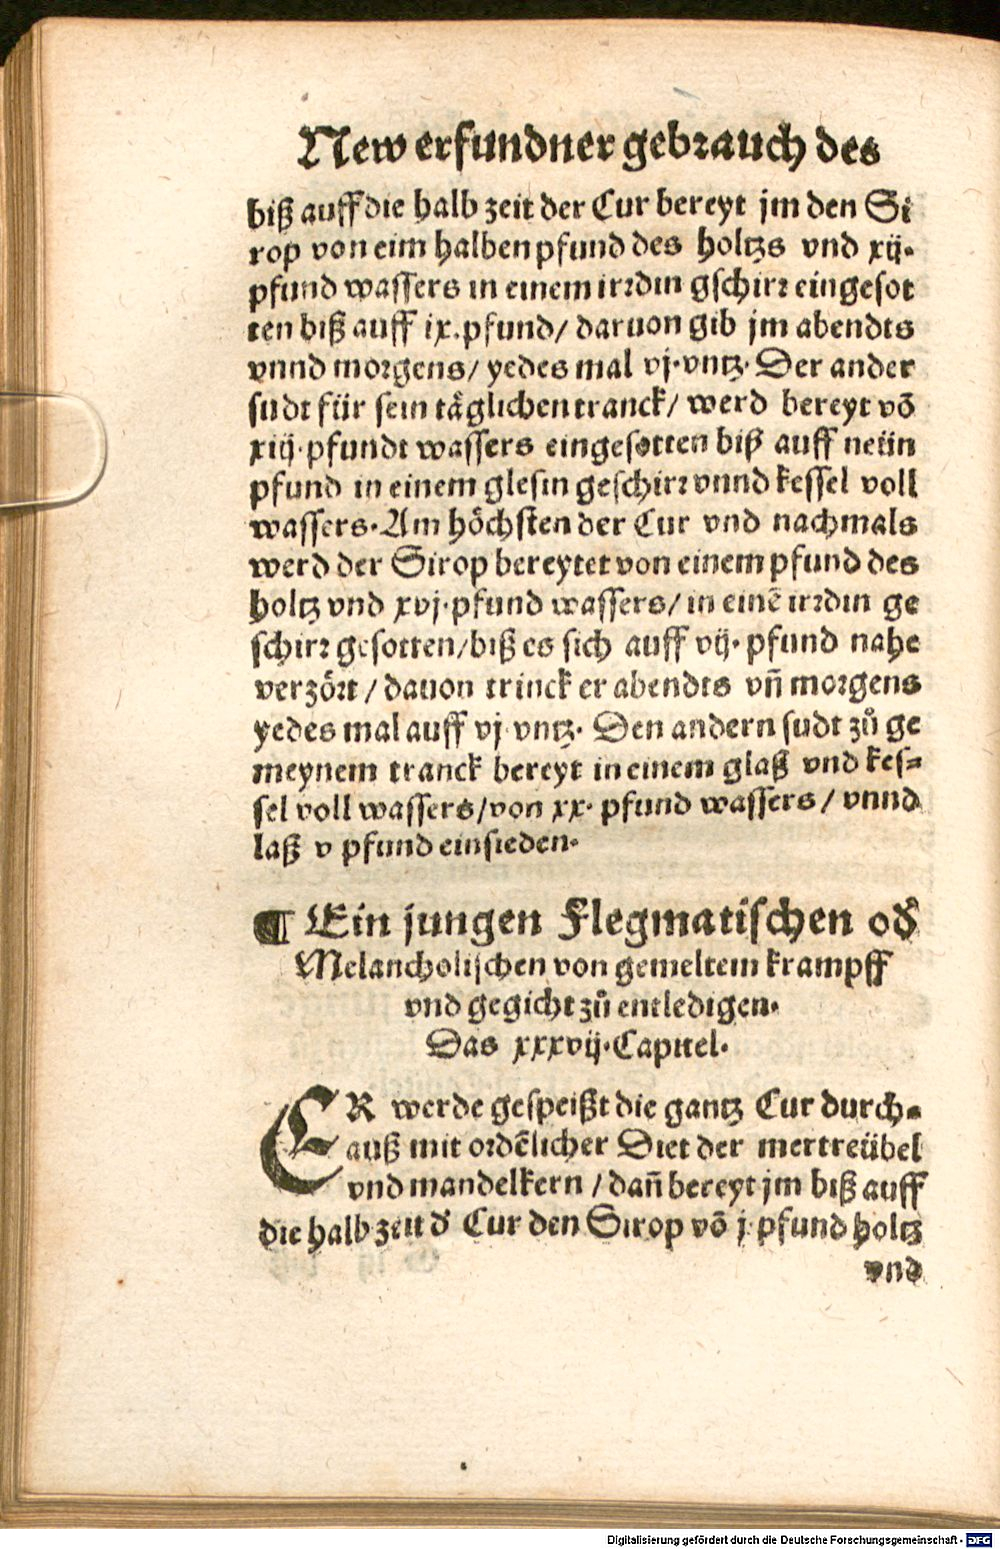 New erfundner gebrauch des
biß auff die halb zeit der Cur bereyt jm den Si
rop von eim halben pfund des holtzs vnd xij.
pfund wassers in einem irrdin gschirr eingesot
ten biß auff ix. pfund/ daruon gib jm abendts
vnnd morgens/ yedes mal vj. vntz. Der ander
sudt für sein täglichen tranck/ werd bereyt võ
xiij. pfundt wassers eingesotten biß auff neün
pfund in einem glesin geschirr vnnd kessel voll
wassers. Am höchsten der Cur vnd nachmals
werd der Sirop bereytet von einem pfund des
holtz vnd xvj. pfund wassers/ in einẽ irrdin ge
schirr gesotten/ biß es sich auff vij. pfund nahe
verzört/ dauon trinck er abendts vñ morgens
yedes mal auff vj vntz. Den andern sudt zů ge
meynem tranck bereyt in einem glaß vnd kes=
sel voll wassers/ von xx. pfund wassers/ vnnd
laß v pfund einsieden.
¶ Ein jungen Flegmatischen od̕
Melancholischen von gemeltem krampff
vnd gegicht zů entledigen.
Das xxxvij. Capitel.
ER werde gespeißt die gantz Cur durch=
auß mit ordẽlicher Diet der mertreübel
vnd mandelkern / dañ bereyt jm biß auff
die halb zeit d̕ Cur den Sirop võ j. pfund holtz
vnd
Digitalisierung gefördert durch die Deutsche Forschungsgemeinschaft - DFG